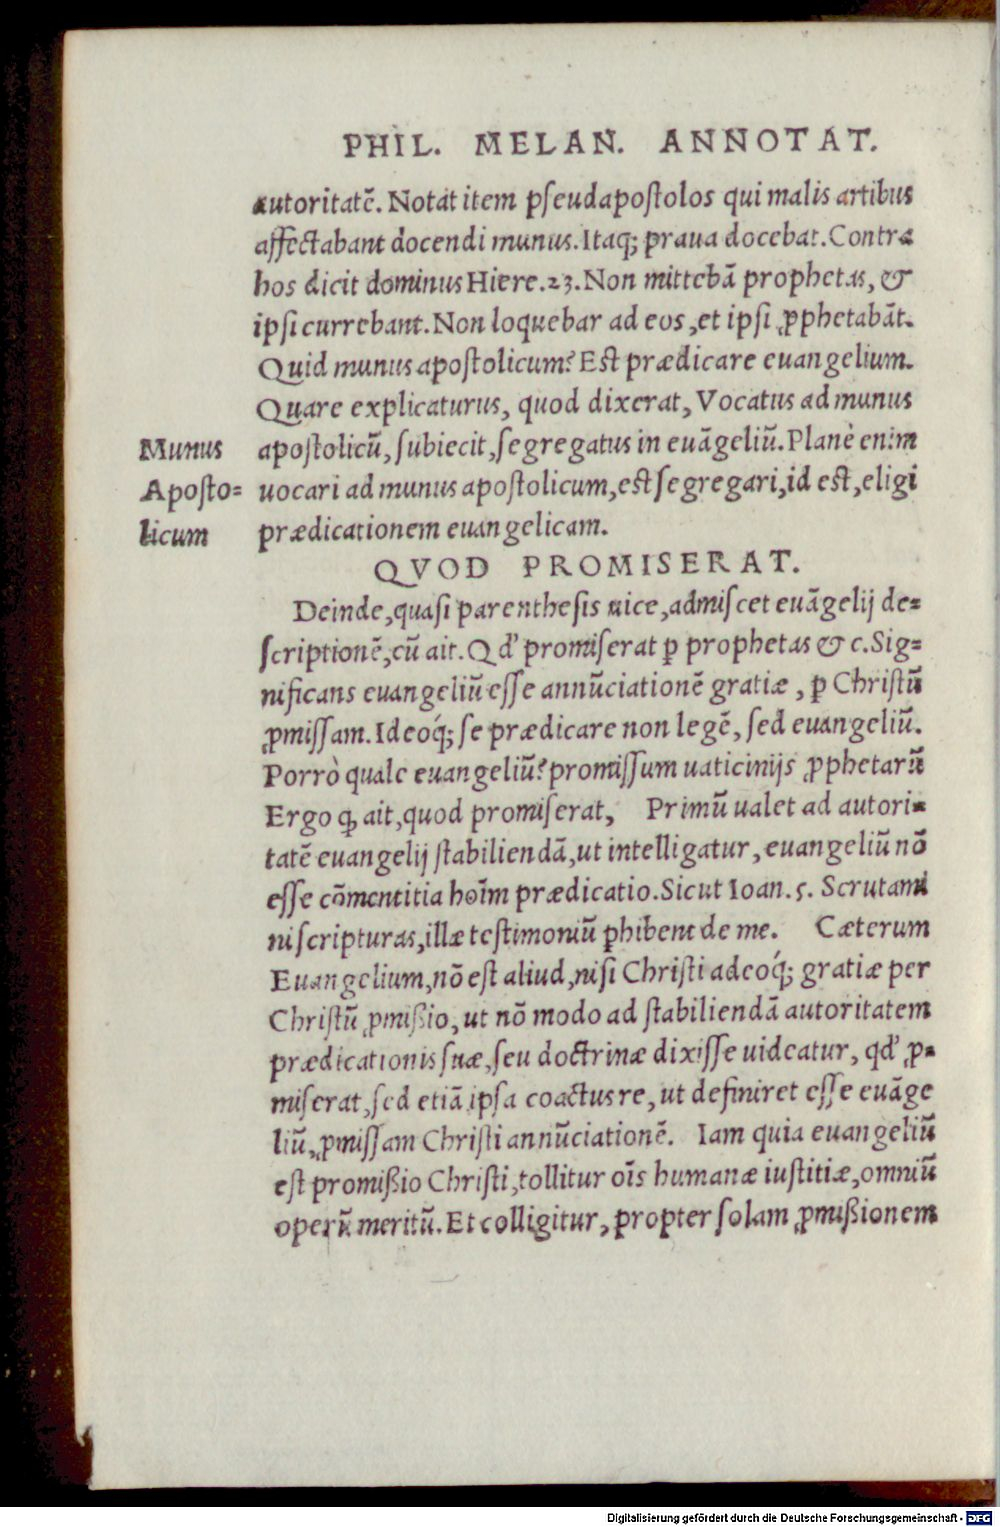 PHIL. MELAN. ANNOTAT.
autoritatē. Notat item pſeudapoſtolos qui malis artibus
affectabant docendi munus. Itaq; praua docebāt. Contra
hos dicit dominus Hiere. 23. Non mittebā prophetas, &
ipſi currebant. Non loquebar ad eos, et ipſi ꝓphetabāt.
Quid munus apoſtolicum? Eſt prædicare euangelium.
Quare explicaturus, quod dixerat, Vocatus ad munus
Munus
Apoſto=
licum
apoſtolicū, ſubiecit, ſegregatus in euāgeliū. Planè enim
uocari ad munus apoſtolicum, eſt ſegregari, id eſt, eligi
prædicationem euangelicam.
QVOD PROMISERAT.
Deinde, quaſi parentheſis uice, admiſcet euāgelij de=
ſcriptionē, cū ait. Qd' promiſerat ꝑ prophetas & c. Sig=
nificans euangeliū eſſe annūciationē gratiæ, ꝑ Chriſtū
ꝓmiſſam. Ideoq́; ſe prædicare non legē, ſed euangeliū.
Porrò quale euangeliū? promiſſum uaticinijs ꝓphetarū
Ergo ꝙ ait, quod promiſerat, Primū ualet ad autori=
tatē euangelij ſtabiliendā, ut intelligatur, euangeliū nō
eſſe cōmentitia hoīm prædicatio. Sicut Ioan. 5. Scrutami
ni ſcripturas, illæ teſtimoniū ꝑhibent de me. Cæterum
Euangelium, nō eſt aliud, niſi Chriſti adeoq́; gratiæ per
Chriſtū ꝓmißio, ut nō modo ad ſtabiliendā autoritatem
prædicationis ſuæ, ſeu doctrinæ dixiſſe uideatur, qd' ꝓ=
miſerat, ſed etiā ipſa coactus re, ut definiret eſſe euāge
liū, ꝓmiſſam Chriſti annūciationē. Iam quia euangeliū
eſt promißio Chriſti, tollitur oīs humanæ iuſtitiæ, omniū
operū meritū. Et colligitur, propter ſolam ꝓmißionem
Digitalisierung gefördert durch die Deutsche Forschungsgemeinschaft - DFG